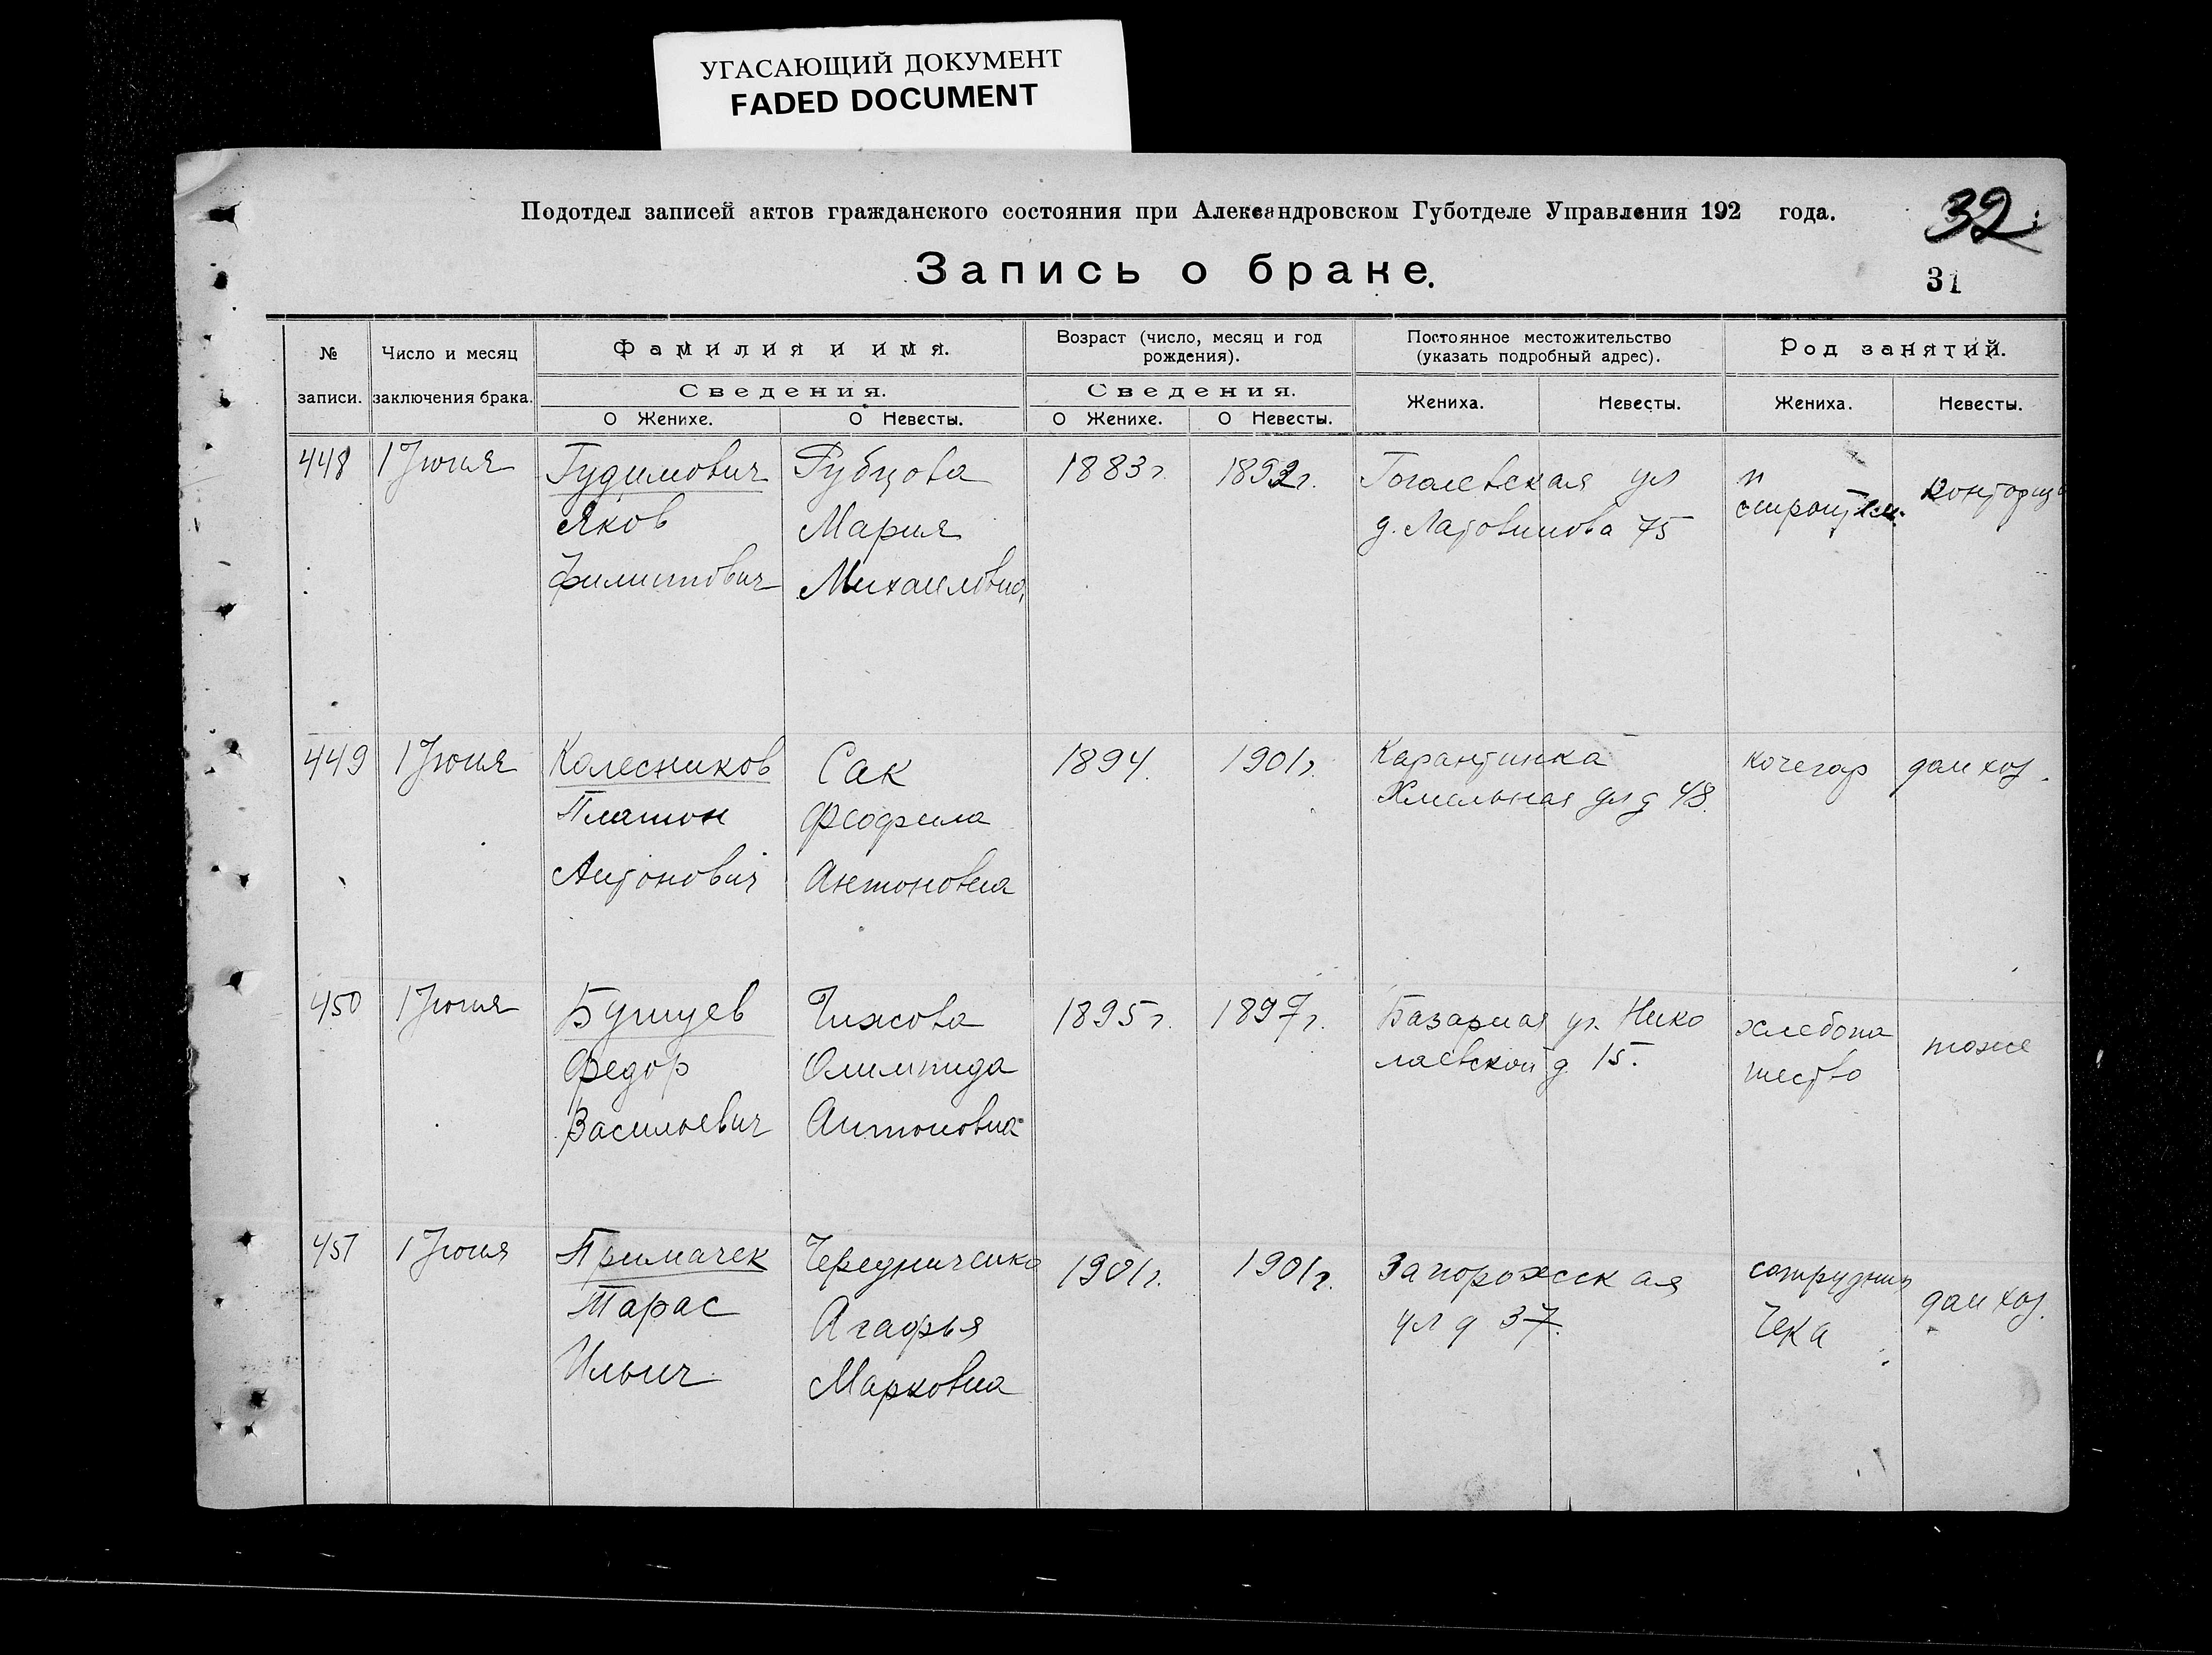 УГАСАЮЩИЙ ДОКУМЕНТ
FADED DOCUMENT
Подотдел записей актов гражданского состояния при Александровском Губотделе Управления 192 года.
32
Запись о браке.
31
№ записи.
Число и месяц заключения брака.
Фамилия и имя.
Сведения.
О Женихе.
О Невесты.
Возраст (число, месяц и год
рождения).
Сведения.
О Женихе.
О Невесты.
Постоянное местожительство
(указать подробный адрес).
Жениха.
Невесты.
Род занятий.
Жениха.
Невесты.
448 1 Июня Гудимович Рубцова 1883 г. 1892 г. Гоголевская ул
Яков Мария д. 75
Филиппович Михаиловна
449 1 Июня Колесников Сак 1894. 1901 г. Карантинка кочегар дом хоз.
Платон Феофила Хмельная ул д 48.
Антонович Антоновна
450 1 Июня Бушуев Чижова 1895 г. 1897 г. Базарная уг. Нико хлебопа тоже
Федор Олимпида лаевской д. 15. шество
Васильевич Антоновна
451 1 Июня Примачек Чередниченко 1901 г. 1901 г. Запорожская сотрудник дом хоз.
Тарас Агафья ул д 37. Чека
Ильич Марковна